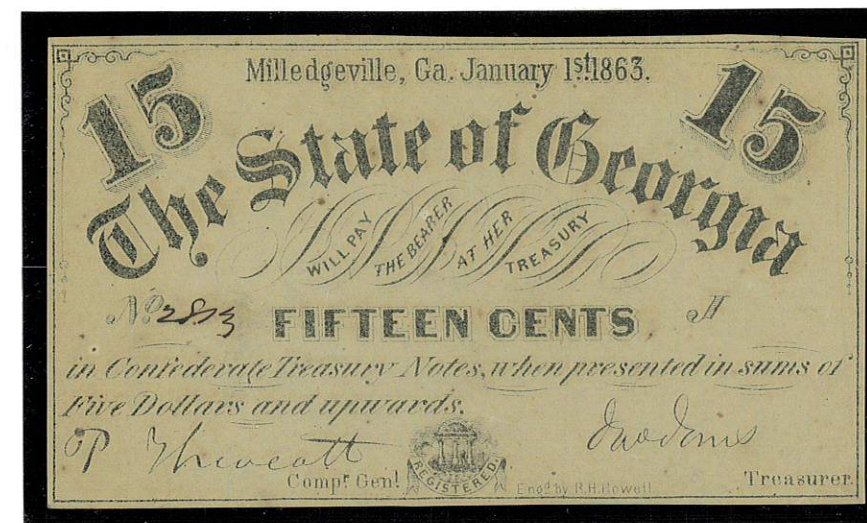 15 Milledgeville, Ga. January 1st 1863. 15
The State of Georgia
WILL PAY THE BEARER AT HER TREASURY
No
FIFTEEN CENTS
in Confederate Treasury Notes, when presented in sums of
Five Dollars and upwards.
Compr Genl
REGISTERED
Engd by R.H. Howell
Treasurer.